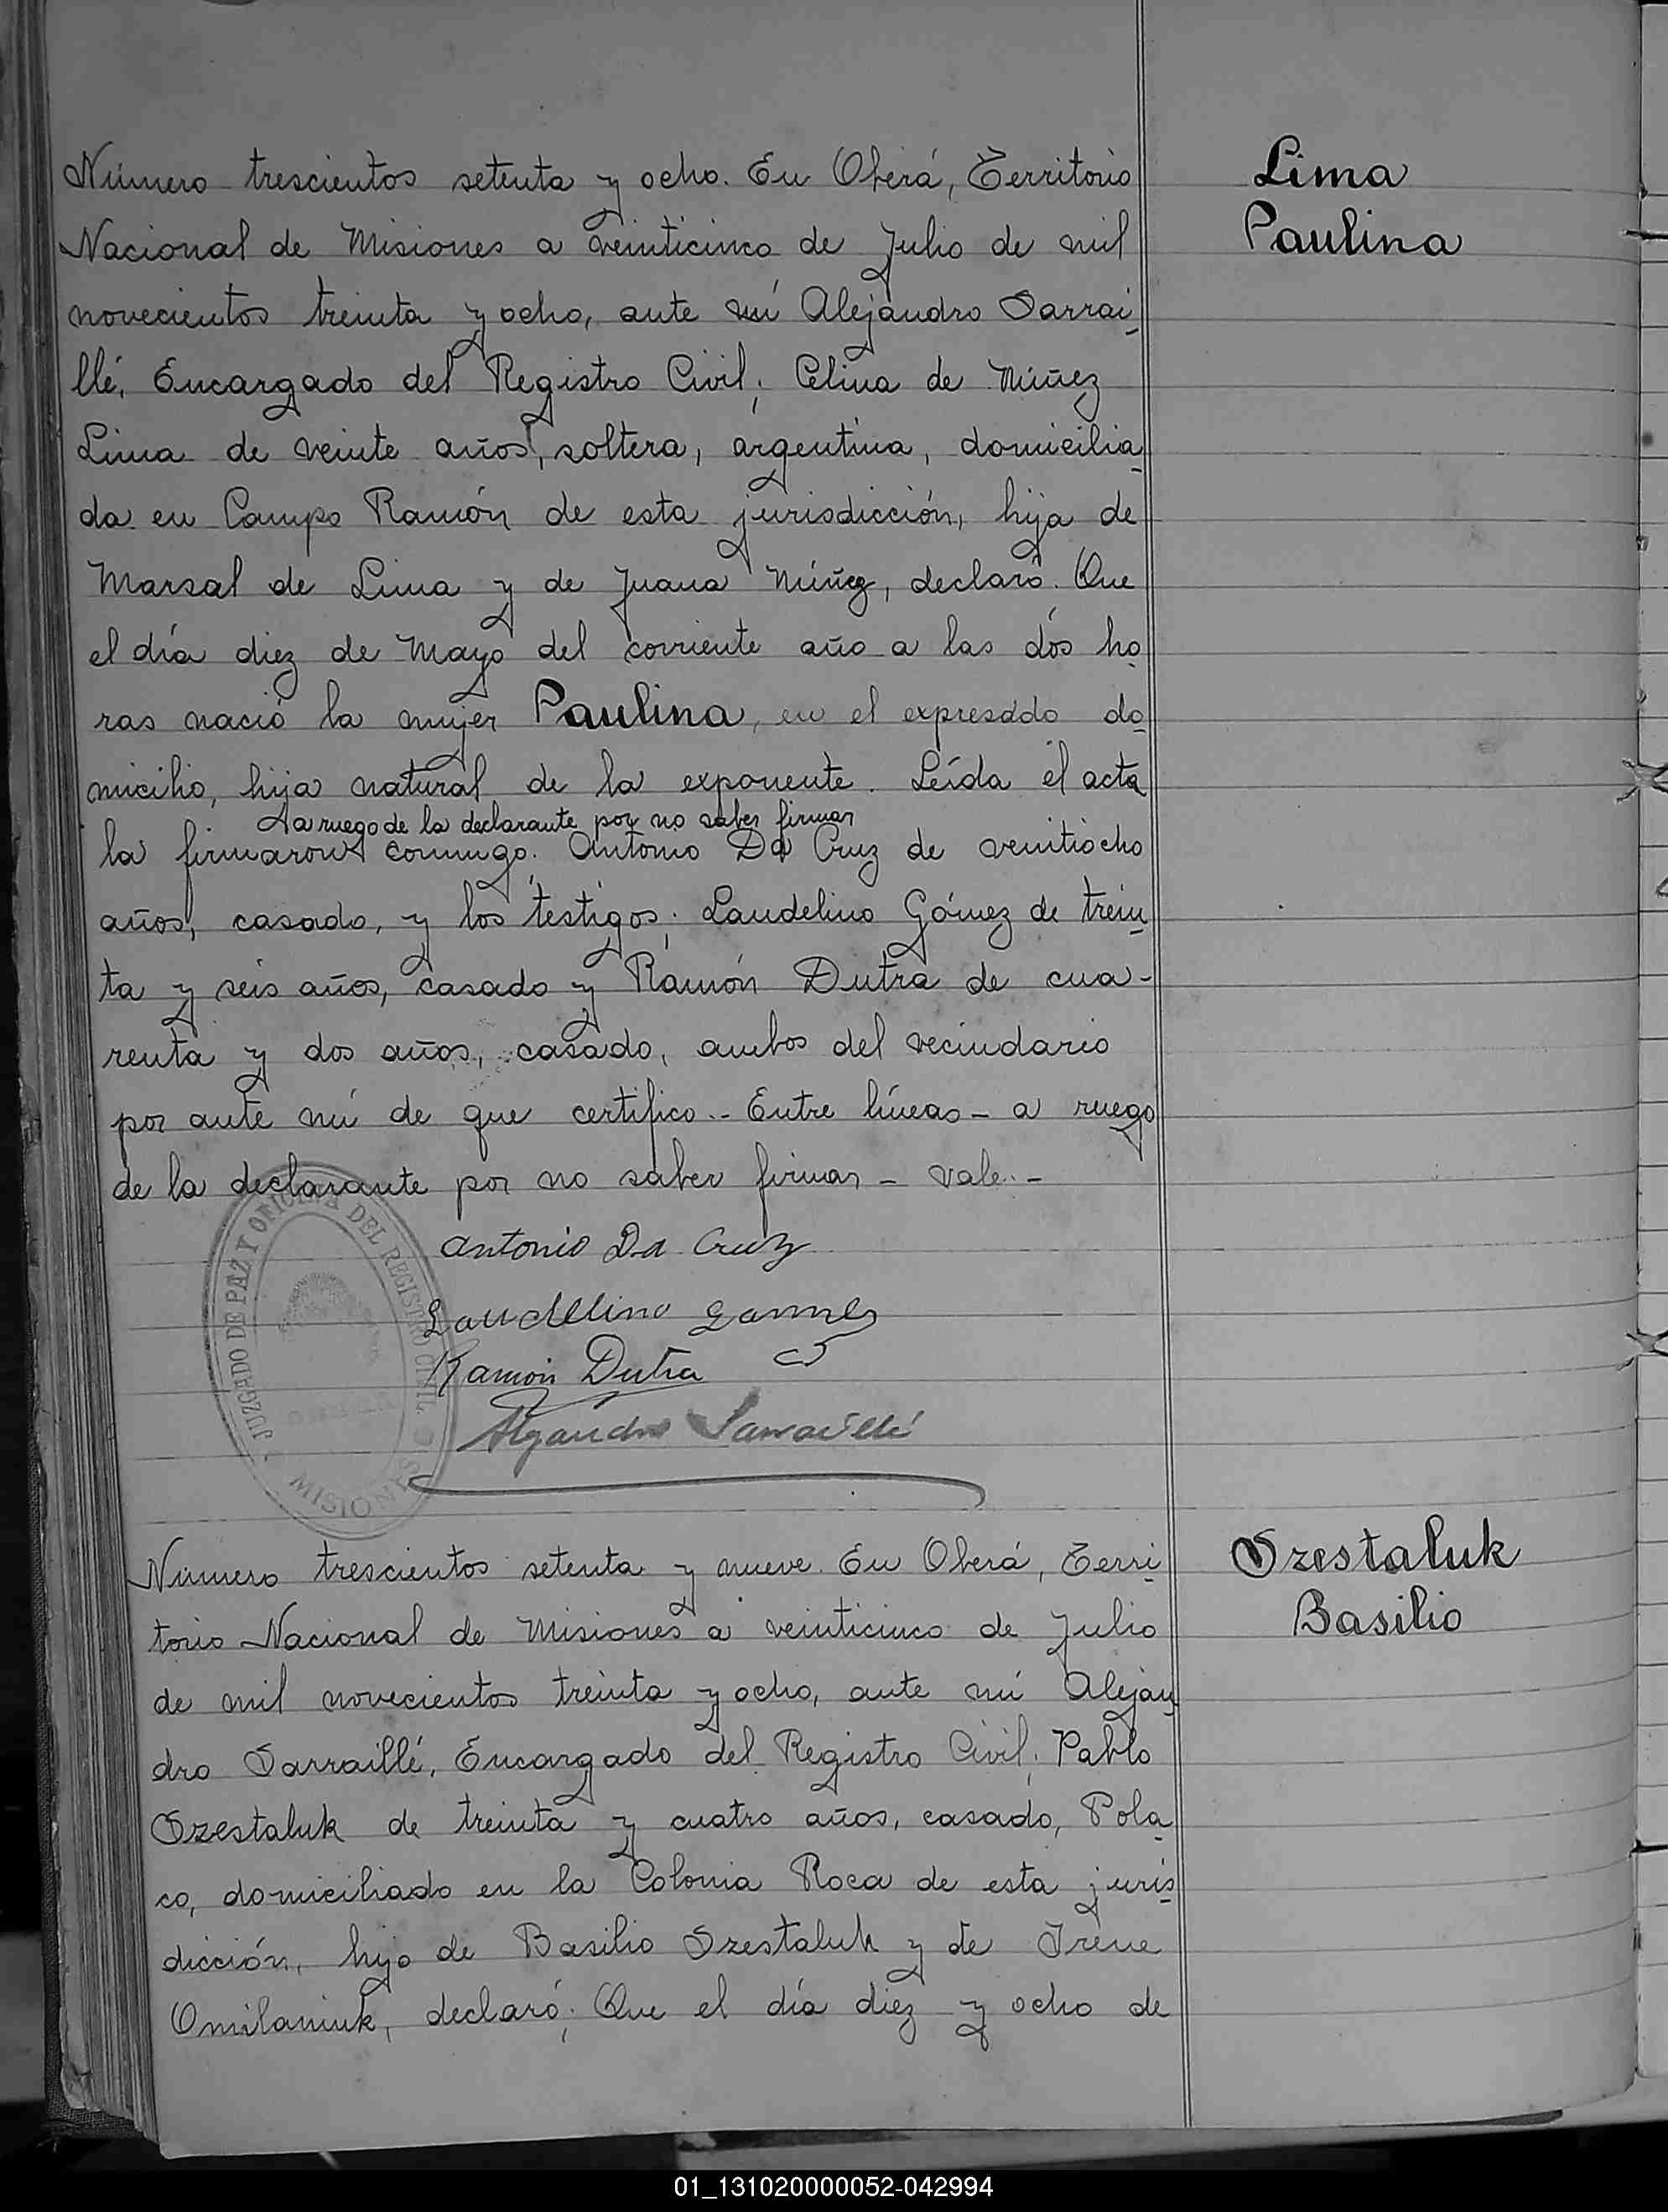 Número trescientos setenta y ocho. En Oberá, Territorio
Lima
Nacional de Misiones a veinticinco de Julio de mil
Paulina
novecientos treinta y ocho, ante mí Alejandro Sarrai
llé, Encargado del Registro Civil; Celina de Núñez
Lima de veinte años, soltera, argentina, domicilia
da en Campo Ramón de esta jurisdicción, hija de
Marsal de Lima y de Juana Núñez, declaró. Que
el día diez de Mayo del corriente año a las dós ho
ras nació la mujer Paulina, en el expresado do
micilio, hija natural de la exponente. Leída el acta
a ruego de la declarante por no saber firmar
la firmaron conmigo. Antonio Da Cruz de venitiocho
años, casado, y los testigos; Laudelino Gómez de trein
ta y seis años, casado y Ramón Dutra de cua-
renta y dos años, casado, ambos del vecindario
por ante mí de que certifico.- Entre líneas - a ruego
de la declarante por no saber firmar - vale.-
Antonio Da Cruz
Laudellino Gomes
Ramón Dutra
Alejandro Sarraillé
JUZGADO DE PAZ Y OFICINA DEL REGISTRO CIVIL
MISIONES
Número trescientos setenta y nueve. En Oberá, Terri
Szestaluk
torio Nacional de Misiones a veinticinco de Julio
Basilio
de mil novecientos treinta y ocho, ante mí Alejan
dro Sarraillé, Encargado del Registro Civil; Pablo
Szestaluk de treinta y cuatro años, casado, Pola
co, domiciliado en la Colonia Roca de esta juris
dicción, hijo de Basilio Szestaluk y de Irene
Omilaniuk, declaró; Que el día diez y ocho de
01_131020000052-042994